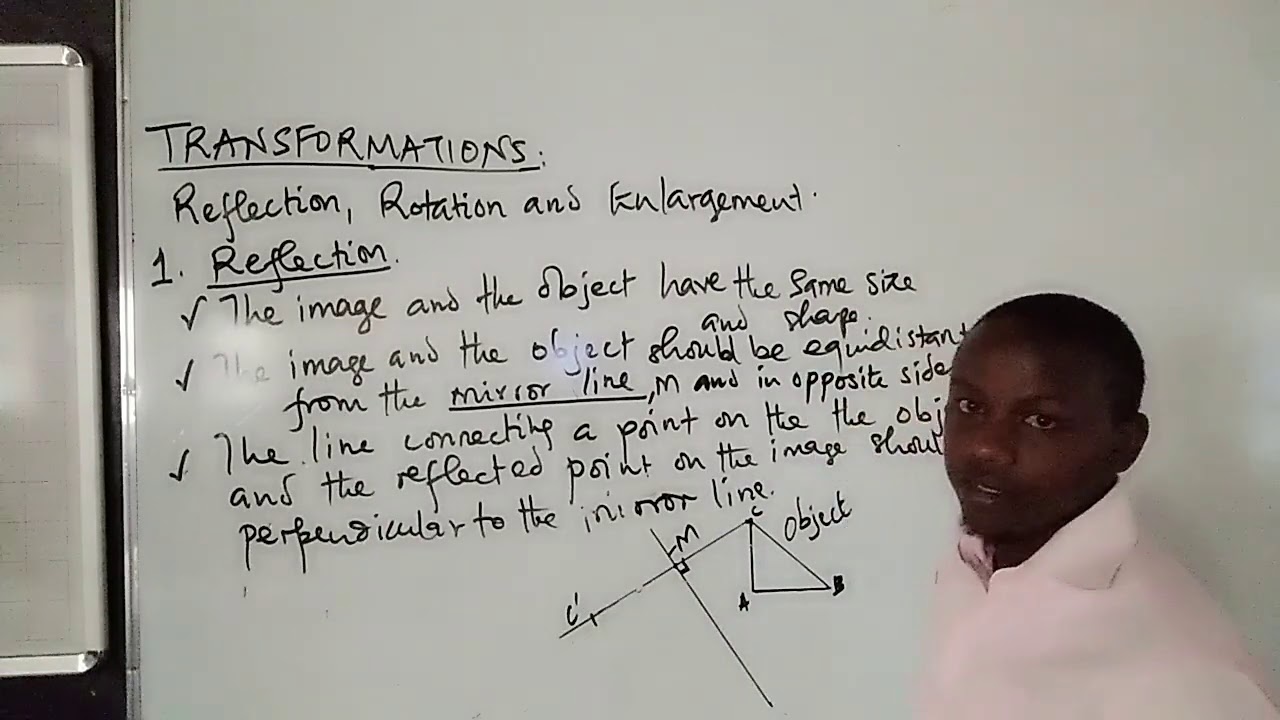 TRANSFORMATIONS:
Reflection, Rotation and Enlargement.
1. Reflection.
✓ The image and the object have the same size
and shape.
✓ The image and the object should be equidistant
from the mirror line, M and in opposite side
✓ The line connecting a point on the the obj
and the reflected point on the image shoul
perpendicular to the mirror line.
C
Object
M
C'
A
B